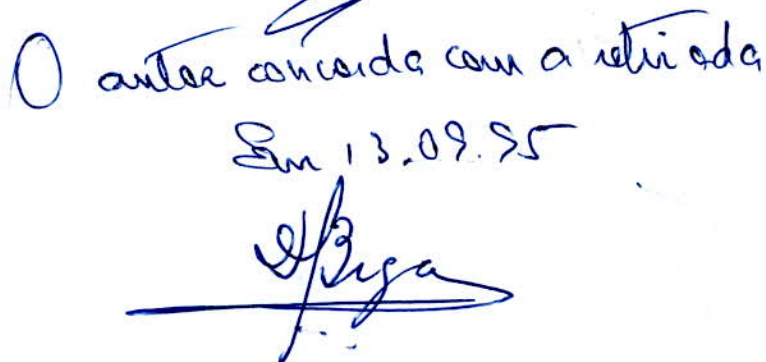 O autor concorda com a retirada
Em 13.09.95